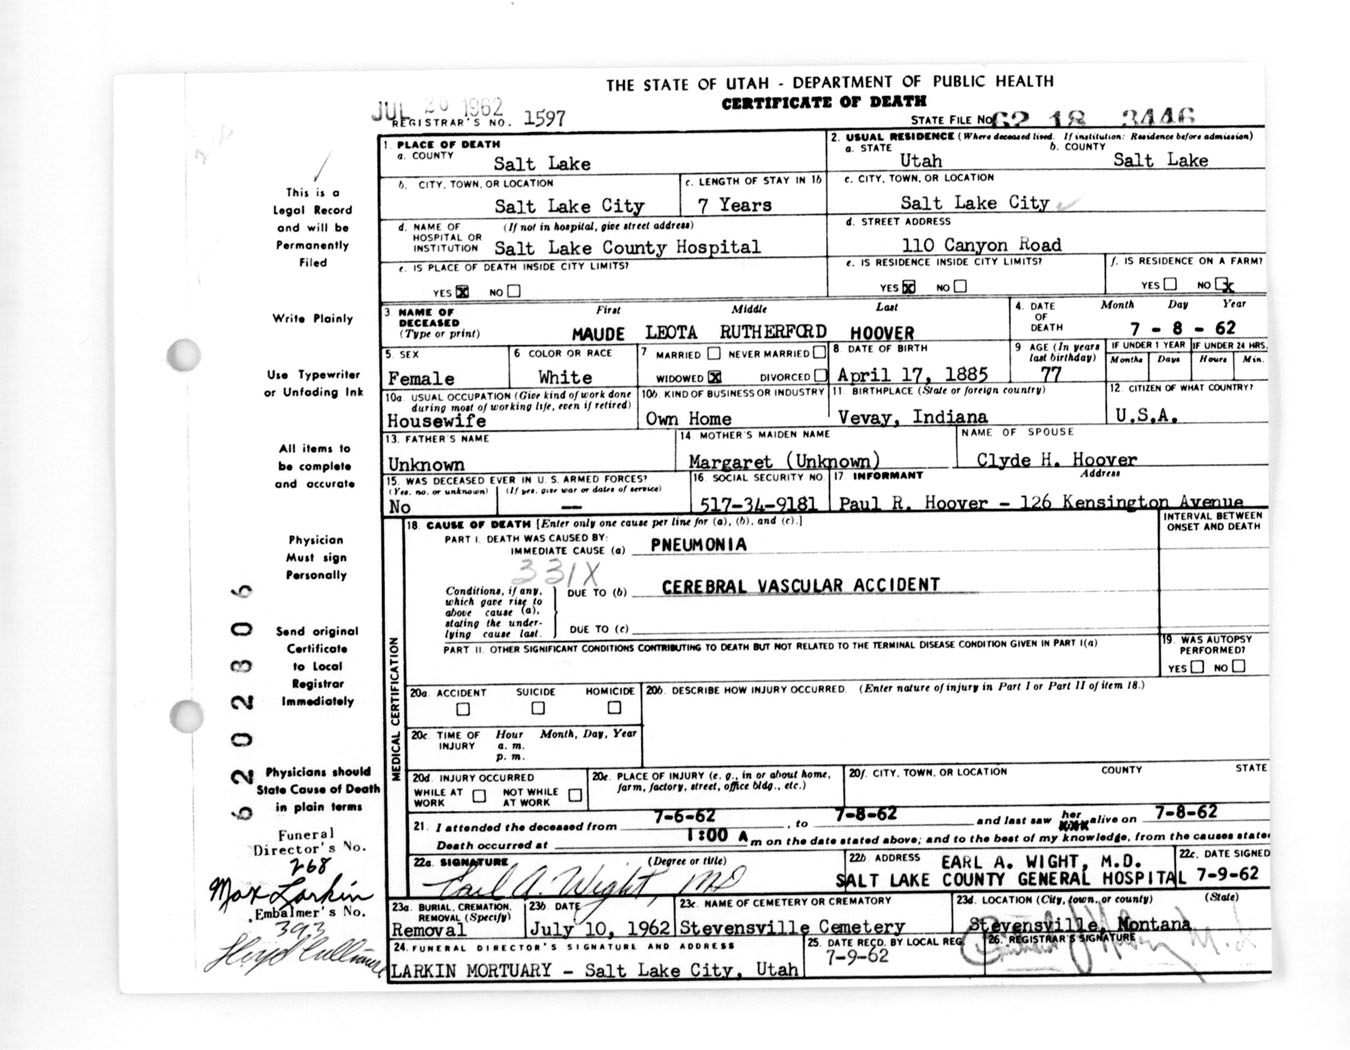 THE STATE OF UTAH - DEPARTMENT OF PUBLIC HEALTH
CERTIFICATE OF DEATH
JUL 20 1962
REGISTRAR'S NO. 1597
STATE FILE NO. 62 18 3446
1. PLACE OF DEATH
a. COUNTY Salt Lake
2. USUAL RESIDENCE (Where deceased lived. If institution: Residence before admission)
a. STATE Utah b. COUNTY Salt Lake
b. CITY, TOWN, OR LOCATION Salt Lake City
c. LENGTH OF STAY IN 1b 7 Years
c. CITY, TOWN, OR LOCATION Salt Lake City
d. NAME OF HOSPITAL OR INSTITUTION (If not in hospital, give street address) Salt Lake County Hospital
d. STREET ADDRESS 110 Canyon Road
e. IS PLACE OF DEATH INSIDE CITY LIMITS?
YES X NO
e. IS RESIDENCE INSIDE CITY LIMITS?
YES X NO
f. IS RESIDENCE ON A FARM?
YES NO X
3 NAME OF DECEASED (Type or print)
First Middle Last
MAUDE LEOTA RUTHERFORD HOOVER
4. DATE OF DEATH Month Day Year
7 - 8 - 62
5. SEX Female
6 COLOR OR RACE White
7 MARRIED NEVER MARRIED
WIDOWED X DIVORCED
8. DATE OF BIRTH April 17, 1885
9 AGE (In years last birthday) 77
IF UNDER 1 YEAR Months Days
IF UNDER 24 HRS. Hours Min.
10a. USUAL OCCUPATION (Give kind of work done during most of working life, even if retired) Housewife
10b. KIND OF BUSINESS OR INDUSTRY Own Home
11 BIRTHPLACE (State or foreign country) Vevay, Indiana
12. CITIZEN OF WHAT COUNTRY? U.S.A.
13. FATHER'S NAME Unknown
14. MOTHER'S MAIDEN NAME Margaret (Unknown)
NAME OF SPOUSE Clyde H. Hoover
15. WAS DECEASED EVER IN U. S. ARMED FORCES?
(Yes, no, or unknown) (If yes, give war or dates of service)
No --
16. SOCIAL SECURITY NO. 517-34-9181
17 INFORMANT Address
Paul R. Hoover - 126 Kensington Avenue
18. CAUSE OF DEATH [Enter only one cause per line for (a), (b), and (c).]
INTERVAL BETWEEN ONSET AND DEATH
PART I. DEATH WAS CAUSED BY:
IMMEDIATE CAUSE (a) PNEUMONIA
331X
Conditions, if any, which gave rise to above cause (a), stating the underlying cause last.
DUE TO (b) CEREBRAL VASCULAR ACCIDENT
DUE TO (c)
PART II. OTHER SIGNIFICANT CONDITIONS CONTRIBUTING TO DEATH BUT NOT RELATED TO THE TERMINAL DISEASE CONDITION GIVEN IN PART I(a)
19. WAS AUTOPSY PERFORMED?
YES NO
MEDICAL CERTIFICATION
20a. ACCIDENT SUICIDE HOMICIDE
20b. DESCRIBE HOW INJURY OCCURRED. (Enter nature of injury in Part I or Part II of item 18.)
20c. TIME OF INJURY Hour Month, Day, Year
a. m.
p. m.
20d. INJURY OCCURRED
WHILE AT WORK NOT WHILE AT WORK
20e. PLACE OF INJURY (e. g., in or about home, farm, factory, street, office bldg., etc.)
20f. CITY, TOWN, OR LOCATION COUNTY STATE
21. I attended the deceased from 7-6-62, to 7-8-62 and last saw her alive on 7-8-62
Death occurred at 1:00 A m on the date stated above; and to the best of my knowledge, from the causes state
22a. SIGNATURE (Degree or title)
Earl A. Wight, MD
22b. ADDRESS EARL A. WIGHT, M.D.
SALT LAKE COUNTY GENERAL HOSPITAL
22c. DATE SIGNED 7-9-62
23a. BURIAL, CREMATION, REMOVAL (Specify) Removal
23b. DATE July 10, 1962
23c. NAME OF CEMETERY OR CREMATORY Stevensville Cemetery
23d. LOCATION (City, town, or county) (State)
Stevensville, Montana
24. FUNERAL DIRECTOR'S SIGNATURE AND ADDRESS
LARKIN MORTUARY - Salt Lake City, Utah
25. DATE RECD. BY LOCAL REG. 7-9-62
26. REGISTRAR'S SIGNATURE
This is a
Legal Record
and will be
Permanently
Filed
Write Plainly
Use Typewriter
or Unfading Ink
All items to
be complete
and accurate
Physician
Must sign
Personally
Send original
Certificate
to Local
Registrar
Immediately
Physicians should
State Cause of Death
in plain terms
Funeral
Director's No.
268
Max Larkin
Embalmer's No.
393
6202306